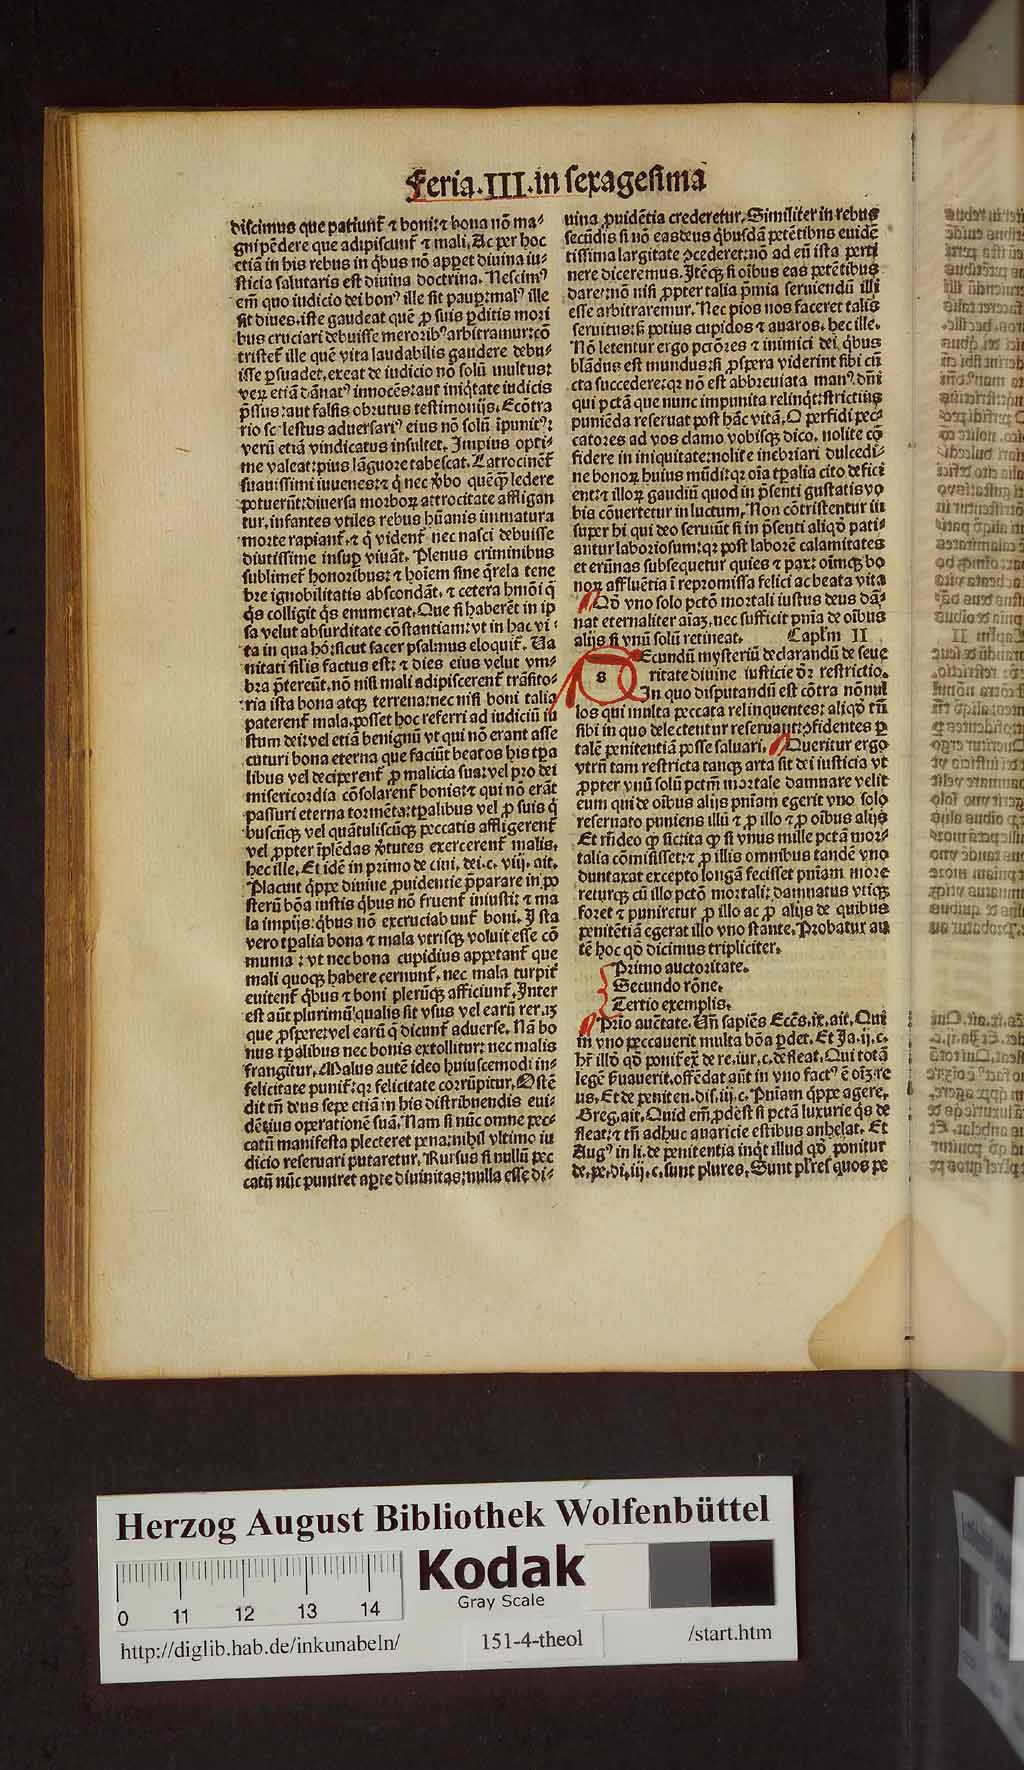 Feria.III.in sexagesima
discimus que patiunt̄ ⁊ boni:⁊ bona nō ma-
gni pēdere que adipiscunt̄ ⁊ mali. Ac per hoc
etiā in his rebus in q̇bus nō apꝑet diuina iu-
sticia salutaris est diuina doctrina. Nescimꝰ
em̄ quo iudicio dei bonꝰ ille sit paup̱:malꝰ ille
sit diues.iste gaudeat quē ꝓ suis ꝑditis mori
bus cruciari debuisse meroribꝰ arbitramur:cō
tristet̄ ille quē vita laudabilis gaudere debu-
isse ꝑsuadet.exeat de iudicio nō solū inultus:
veꝝ etiā dānatꝰ innocēs:aut iniq̇tate iudicis
p̄ssus:aut falsis obrutus testimonijs. Ecōtra
rio sc lestus aduersariꝰ eius nō solū īpunitꝰ:
verū etiā vindicatus insultet. Impius opti-
me valeat:pius lāguore tabescat. Latrocinēt̄
suauissimi iuuenes:⁊ q̇ nec v̓bo quēqꝫ ledere
potuerūt:diuersa morboꝝ attrocitate affligan
tur.infantes vtiles rebus hūanis immatura
morte rapiant̄.⁊ q̇ vident̄ nec nasci debuisse
diutissime insuꝑ viuāt. Plenus criminibus
sublimet̄ honoribus:⁊ hoīem sine q̄rela tene
bre ignobilitatis abscondāt. ⁊ cetera hmōi q̄
q̇s colligit q̇s enumerat. Que si haberēt in ip
sa velut absurditate cōstantiam:vt in hac vi-
ta in qua hō:sicut sacer psalmus eloquit̄. Va
nitati silis factus est:⁊ dies eius velut vm-
bra p̄tereūt.nō nisi mali adipiscerent̄ trāsito-
ria ista bona atqꝫ terrena:nec nisi boni talia
paterent̄ mala.posset hoc referri ad iudiciū iu
stum dei:vel etiā benignū vt qui nō erant asse
cuturi bona eterna que faciūt beatos his tꝑa
libus vel deciperent̄ ꝓ malicia sua:vel pro dei
misericordia cōsolarent̄ bonis:⁊ qui nō erāt
passuri eterna tormēta:tꝑalibus vel ꝓ suis q̇
buscūqꝫ vel quātuliscūqꝫ peccatis affligerent̄
vel ꝓpter īplēdas v̓tutes exercerent̄ malis.
hec ille. Et idē in primo de ciui. dei.c. viij. ait.
Placuit q̇ppe diuine ꝓuidentie p̄parare in po
sterū bōa iustis q̇bus nō fruent̄ iniusti:⁊ ma
la impijs:q̇bus nō excruciabunt̄ boni. Ista
vero tꝑalia bona ⁊ mala vtrisqꝫ voluit esse cō
munia : vt nec bona cupidius appetant̄ que
mali quoqꝫ habere cernunt̄. nec mala turpit̓
euitent̄ q̇bus ⁊ boni plerūqꝫ afficiunt̄. Inter
est aūt plurimū qualis sit vsus vel earū rerūꝫ
que ꝓspere:vel earū q̄ dicunt̄ aduerse. Nā bo
nus tꝑalibus nec bonis extollitur: nec malis
frangitur. Malus autē ideo huiuscemodi in-
felicitate punit̄:qꝛ felicitate corrūpitur. Ostē
dit tn̄ deus sepe etiā in his distribuendis eui-
dētius operationē suā. Nam si nūc omne pec-
catū manifesta plecteret pena:nihil vltimo iu
dicio reseruari putaretur. Rursus si nullū pec
catū nūc puniret aꝑte diuinitas:nulla esse di-
uina ꝓuidētia crederetur. Similiter in rebus
secūdis si nō eas deus q̇busdā petētibus euidē
tissima largitate ꝯcederet:nō ad eū ista perti
nere diceremus. Itēqꝫ si oībus eas petētibus
daret:nō nisi ꝓpter talia p̄mia seruiendū illi
esse arbitraremur. Nec pios nos faceret talis
seruitus:sꝫ potius cupidos ⁊ auaros. hec ille.
Nō letentur ergo pctōres ⁊ inimici dei q̇bus
blādus est mundus:si ꝓspera viderint sibi cū
cta succedere:qꝛ nō est abbreuiata manꝰ dn̄i
qui pctā que nunc impunita relinq̇t:strictius
puniēda reseruat post hāc vitā. O perfidi pec-
catores ad vos clamo vobisqꝫ dico. nolite cō
fidere in iniquitate:nolite inebriari dulcedi-
ne bonoꝝ huius mūdi:qꝛ oīa tꝑalia cito defici
ent:⁊ illoꝝ gaudiū quod in p̄senti gustatis vo
bis cōuertetur in luctum. Non cōtristentur in
super hi qui deo seruiūt si in p̄senti aliqd̄ pati-
antur laboriosum:qꝛ post laborē calamitates
et erūnas subsequetur quies ⁊ pax: oīmqꝫ bo
noꝝ affluētia ī repromissa felici ac beata vita
Qd̄ vno solo pctō mortali iustus deus dā-
nat eternaliter aīaꝫ.nec sufficit pnīa de oībus
alijs si vnū solū retineat. Capl'm II
Ecundū mysteriū declarandū de seue
s
ritate diuine iusticie dr̄ restrictio.
In quo disputandū est cōtra nōnul
los qui multa peccata relinquentes: aliqd̄ tn̄
sibi in quo delectentur reseruant:ꝯfidentes ꝑ
talē penitentiā posse saluari. Queritur ergo
vtrū tam restricta tanqꝫ arta sit dei iusticia vt
ꝓpter vnū solū pctm̄ mortale damnare velit
eum qui de oībus alijs pnīam egerit vno solo
reseruato puniens illū ⁊ ꝓ illo ⁊ ꝓ oībus alijs
Et rn̄deo ꝙ sic:ita ꝙ si vnus mille pctā mor-
talia cōmisisset:⁊ ꝓ illis omnibus tandē vno
duntaxat excepto longā fecisset pnīam more
returqꝫ cū illo pctō mortali: damnatus vtiqꝫ
foret ⁊ puniretur ꝓ illo ac ꝓ alijs de quibus
penitētiā egerat illo vno stante. Probatur au
tē hoc qd̄ dicimus tripliciter.
Primo auctoritate.
Secundo rōne.
Tertio exemplis.
Prīo auctate. Vn̄ sapiēs Eccs̄.ix.ait. Qui
in vno peccauerit multa bōa ꝑdet. Et Ja.ij.c.
hr̄ illd̄ qd̄ ponit̄ ex̄ de re.iur.c.de fleat. Qui totā
legē f̓uauerit.offēdat aūt in vno factꝰ ē oīꝫ re
us. Et de peniten.dis.iij.c. Pnīam q̇ppe agere.
Greg.ait. Quid em̄ ꝓdest si pctā luxurie q̇s de
fleat:⁊ tn̄ adhuc auaricie estibus anhelat. Et
Augꝰ in li.de penitentia inq̇t illud qd̄ ponitur
de.pe.di.iij.c.sunt plures. Sunt pl'res quos pe
Herzog August Bibliothek Wolfenbüttel
Kodak
Gray Scale
0 11 12 13 14
http://diglib.hab.de/inkunabeln/
151-4-theol
/start.htm